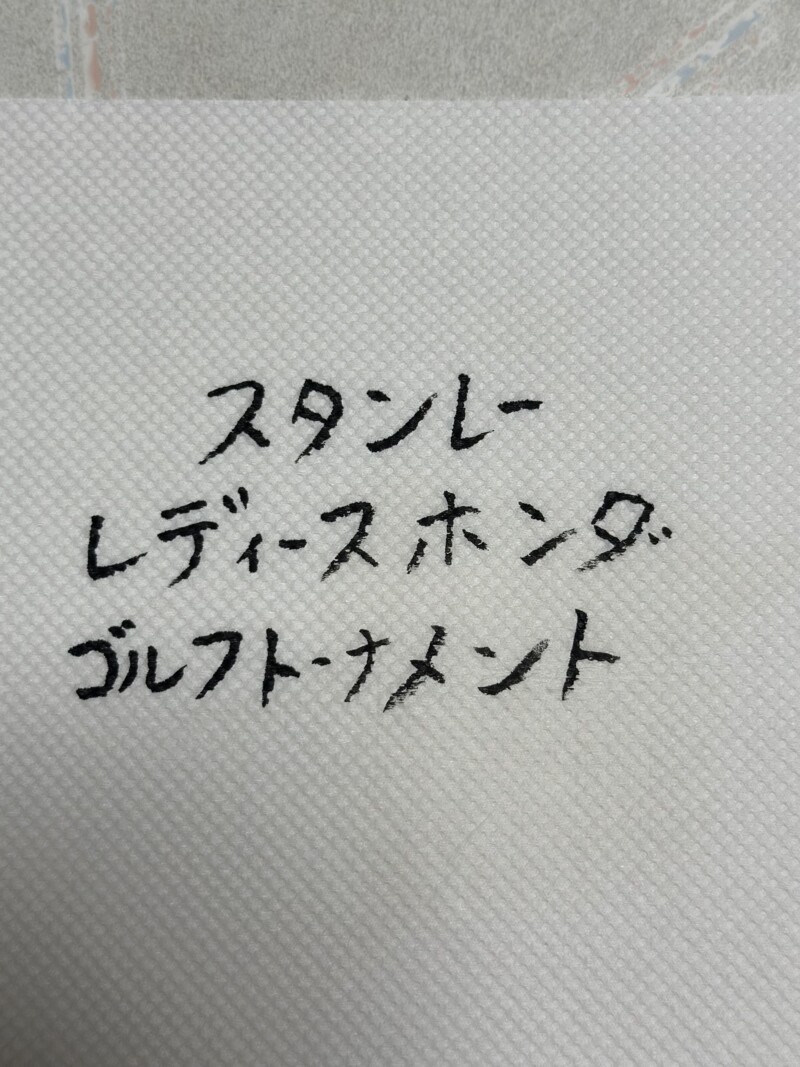 スタンレー
レディースホンダ
ゴルフトーナメント